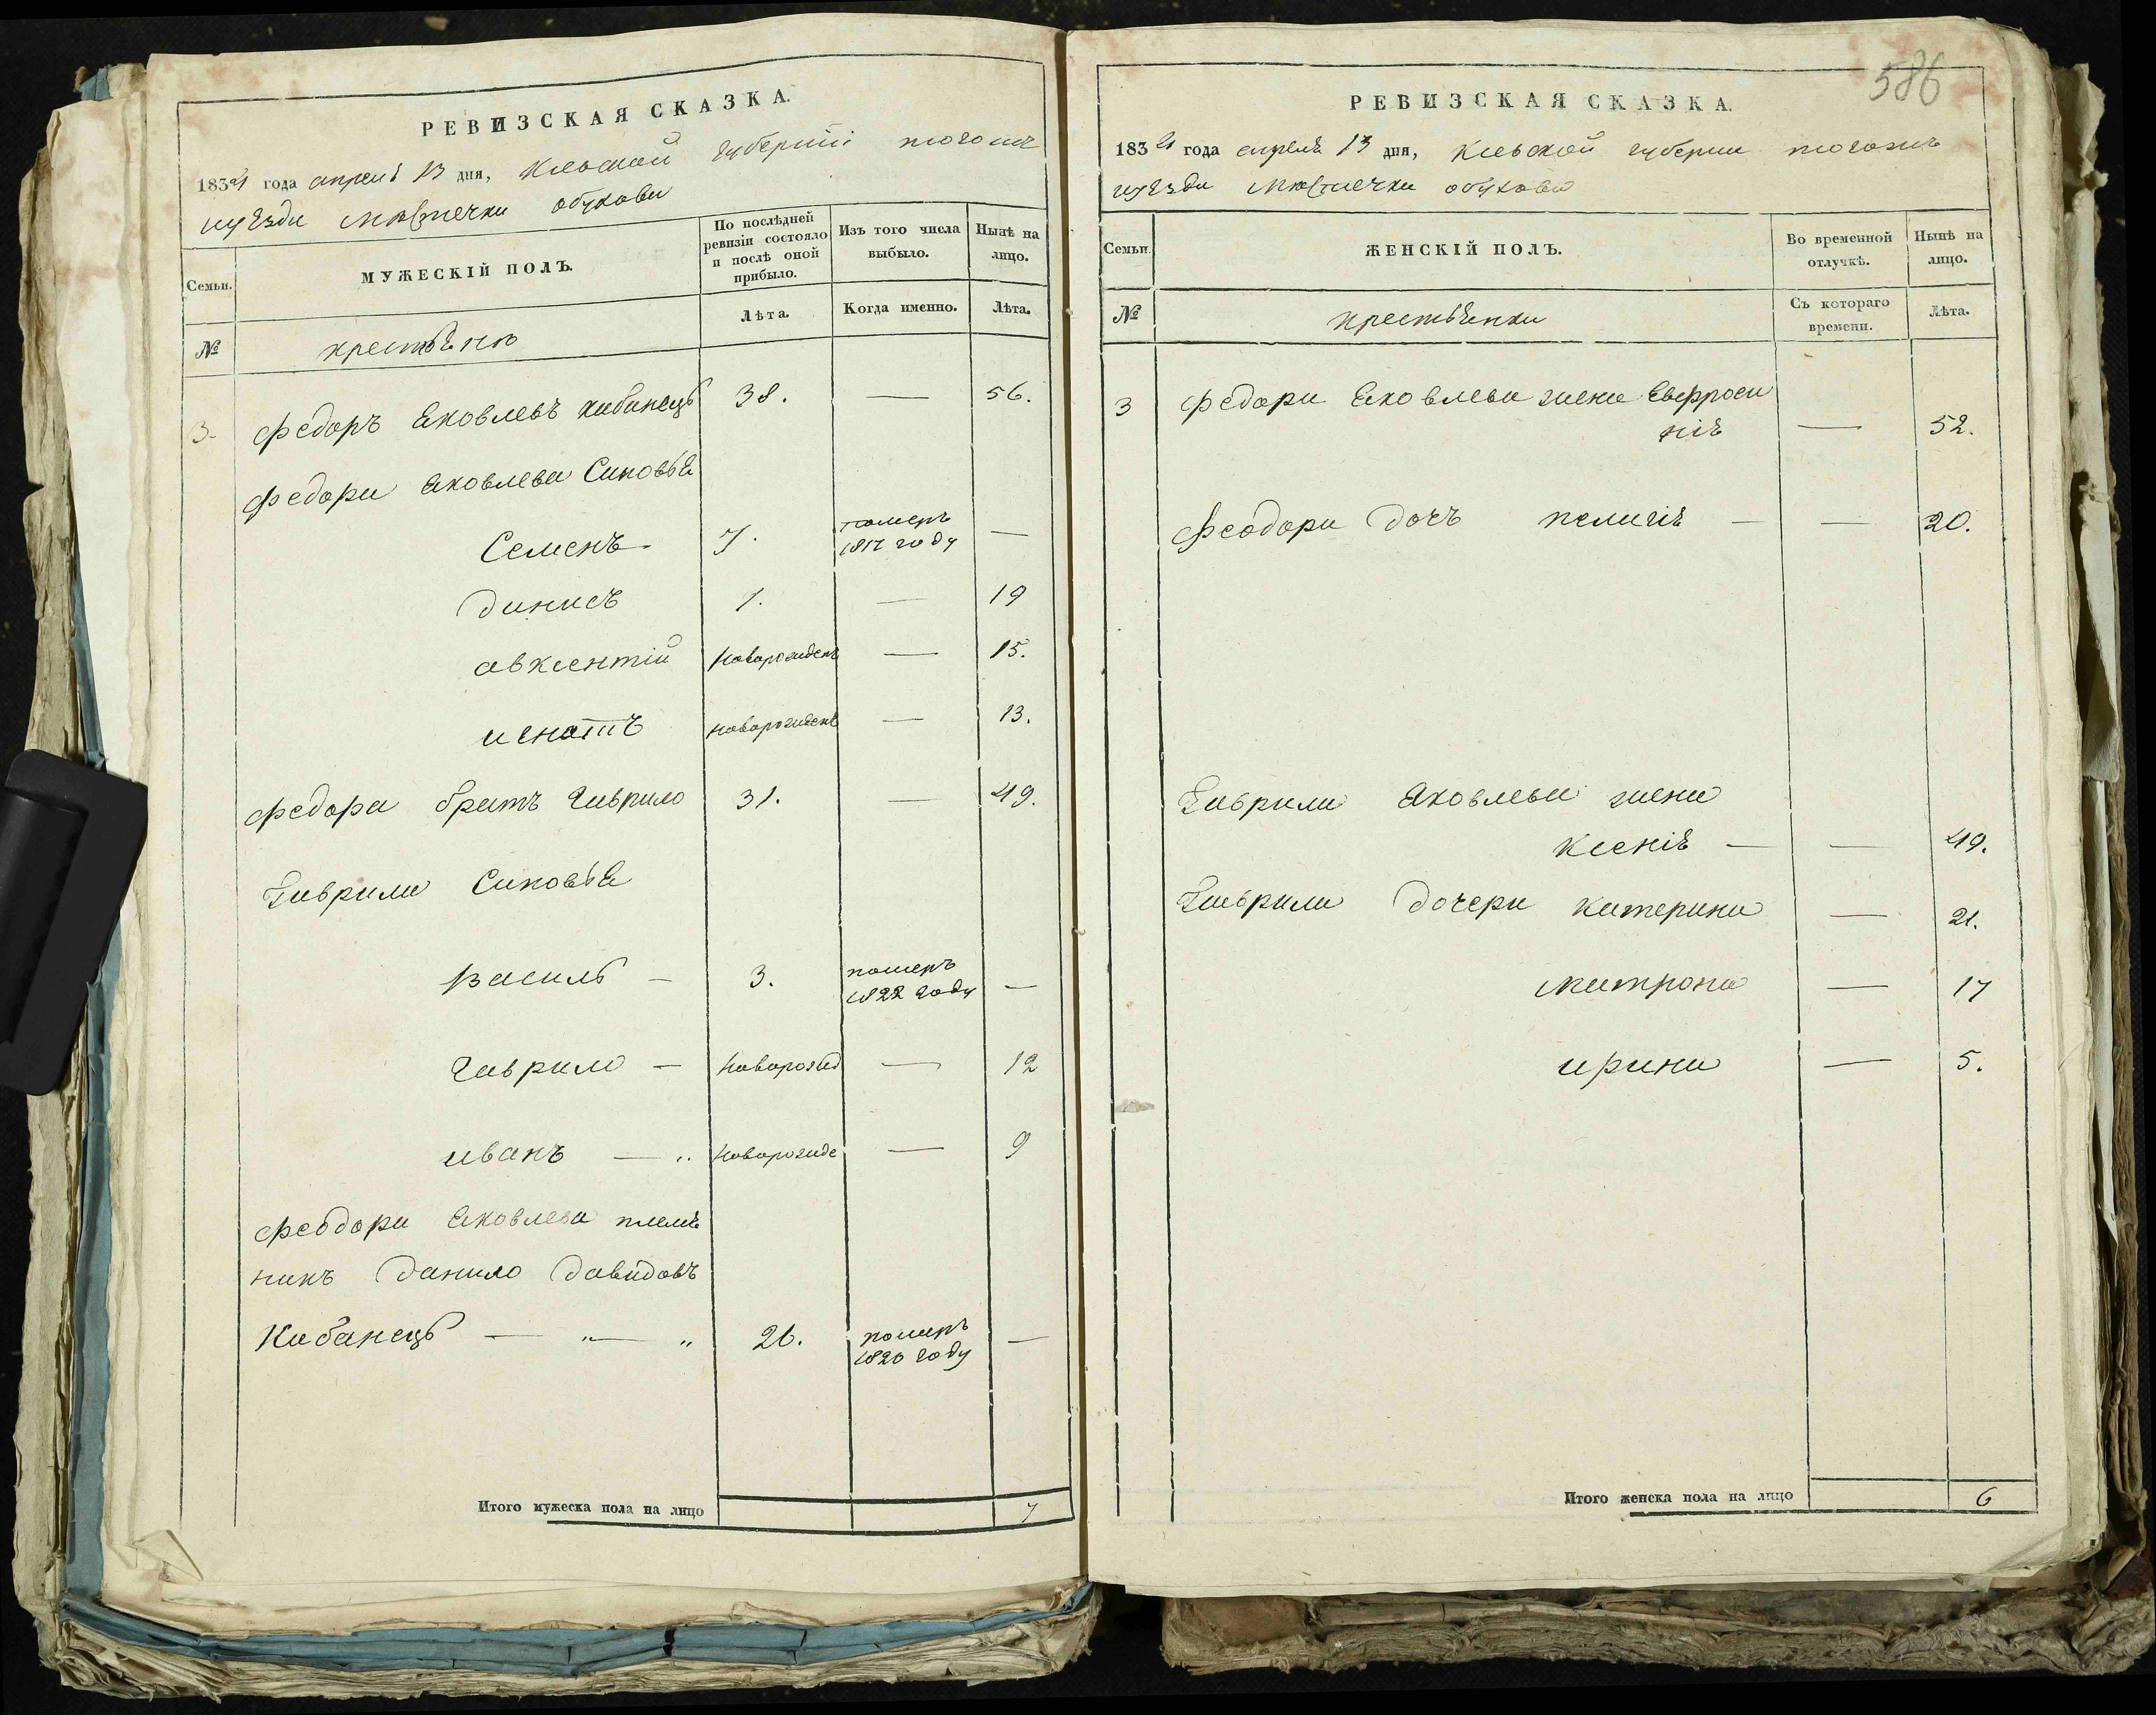 РЕВИЗСКАЯ СКАЗКА.
1834 года апреля 13 дня, Киевской губерніи тогожъ
уѣзда Мюстечка обухова
Семьи.
МУЖЕСКІЙ ПОЛЪ.
По послѣдней ревизіи состояло и послѣ оной прибыло.
Изъ того числа выбыло.
Нынѣ на лицо.
№
крестьяне
Лѣта.
Когда именно.
Лѣта.
3. Федоръ Яковлевъ кабанець 38. — 56.
Федора Яковлева Синовья
Семенъ 7. померъ 1817 году —
данисъ 1. — 19
авксентій Новорожденъ — 15.
игнатъ новорожденъ — 13.
Федора братъ Гаврило 31. — 49.
Гаврила Синовья
Василь — 3. померъ 1822 году —
Гаврило — Новорожд — 12
иванъ — „ Новорожде — 9
Феодора Яковлева племя
никъ данило давидовъ
Кабанець — „ — „ 26. померъ 1820 году —
Итого мужеска пола на лицо 7
586
РЕВИЗСКАЯ СКАЗКА.
1834 года апреля 13 дня, Киевской губернии тогожъ
уѣзда Мюстечка обухова
Семьи.
ЖЕНСКІЙ ПОЛЪ.
Во временной отлучкѣ.
Нынѣ на лицо.
№
крестьянки
Съ котораго времени.
Лѣта.
3 Федора Яковлева жена Евфроси
нія — 52.
Феодора дочъ пелагія — — 20.
Гаврила Яковлева жена
Ксенія — — 49.
Гаврила дочери катерина — 21.
матрона — 17
ирина — 5.
Итого женска пола на лицо 6